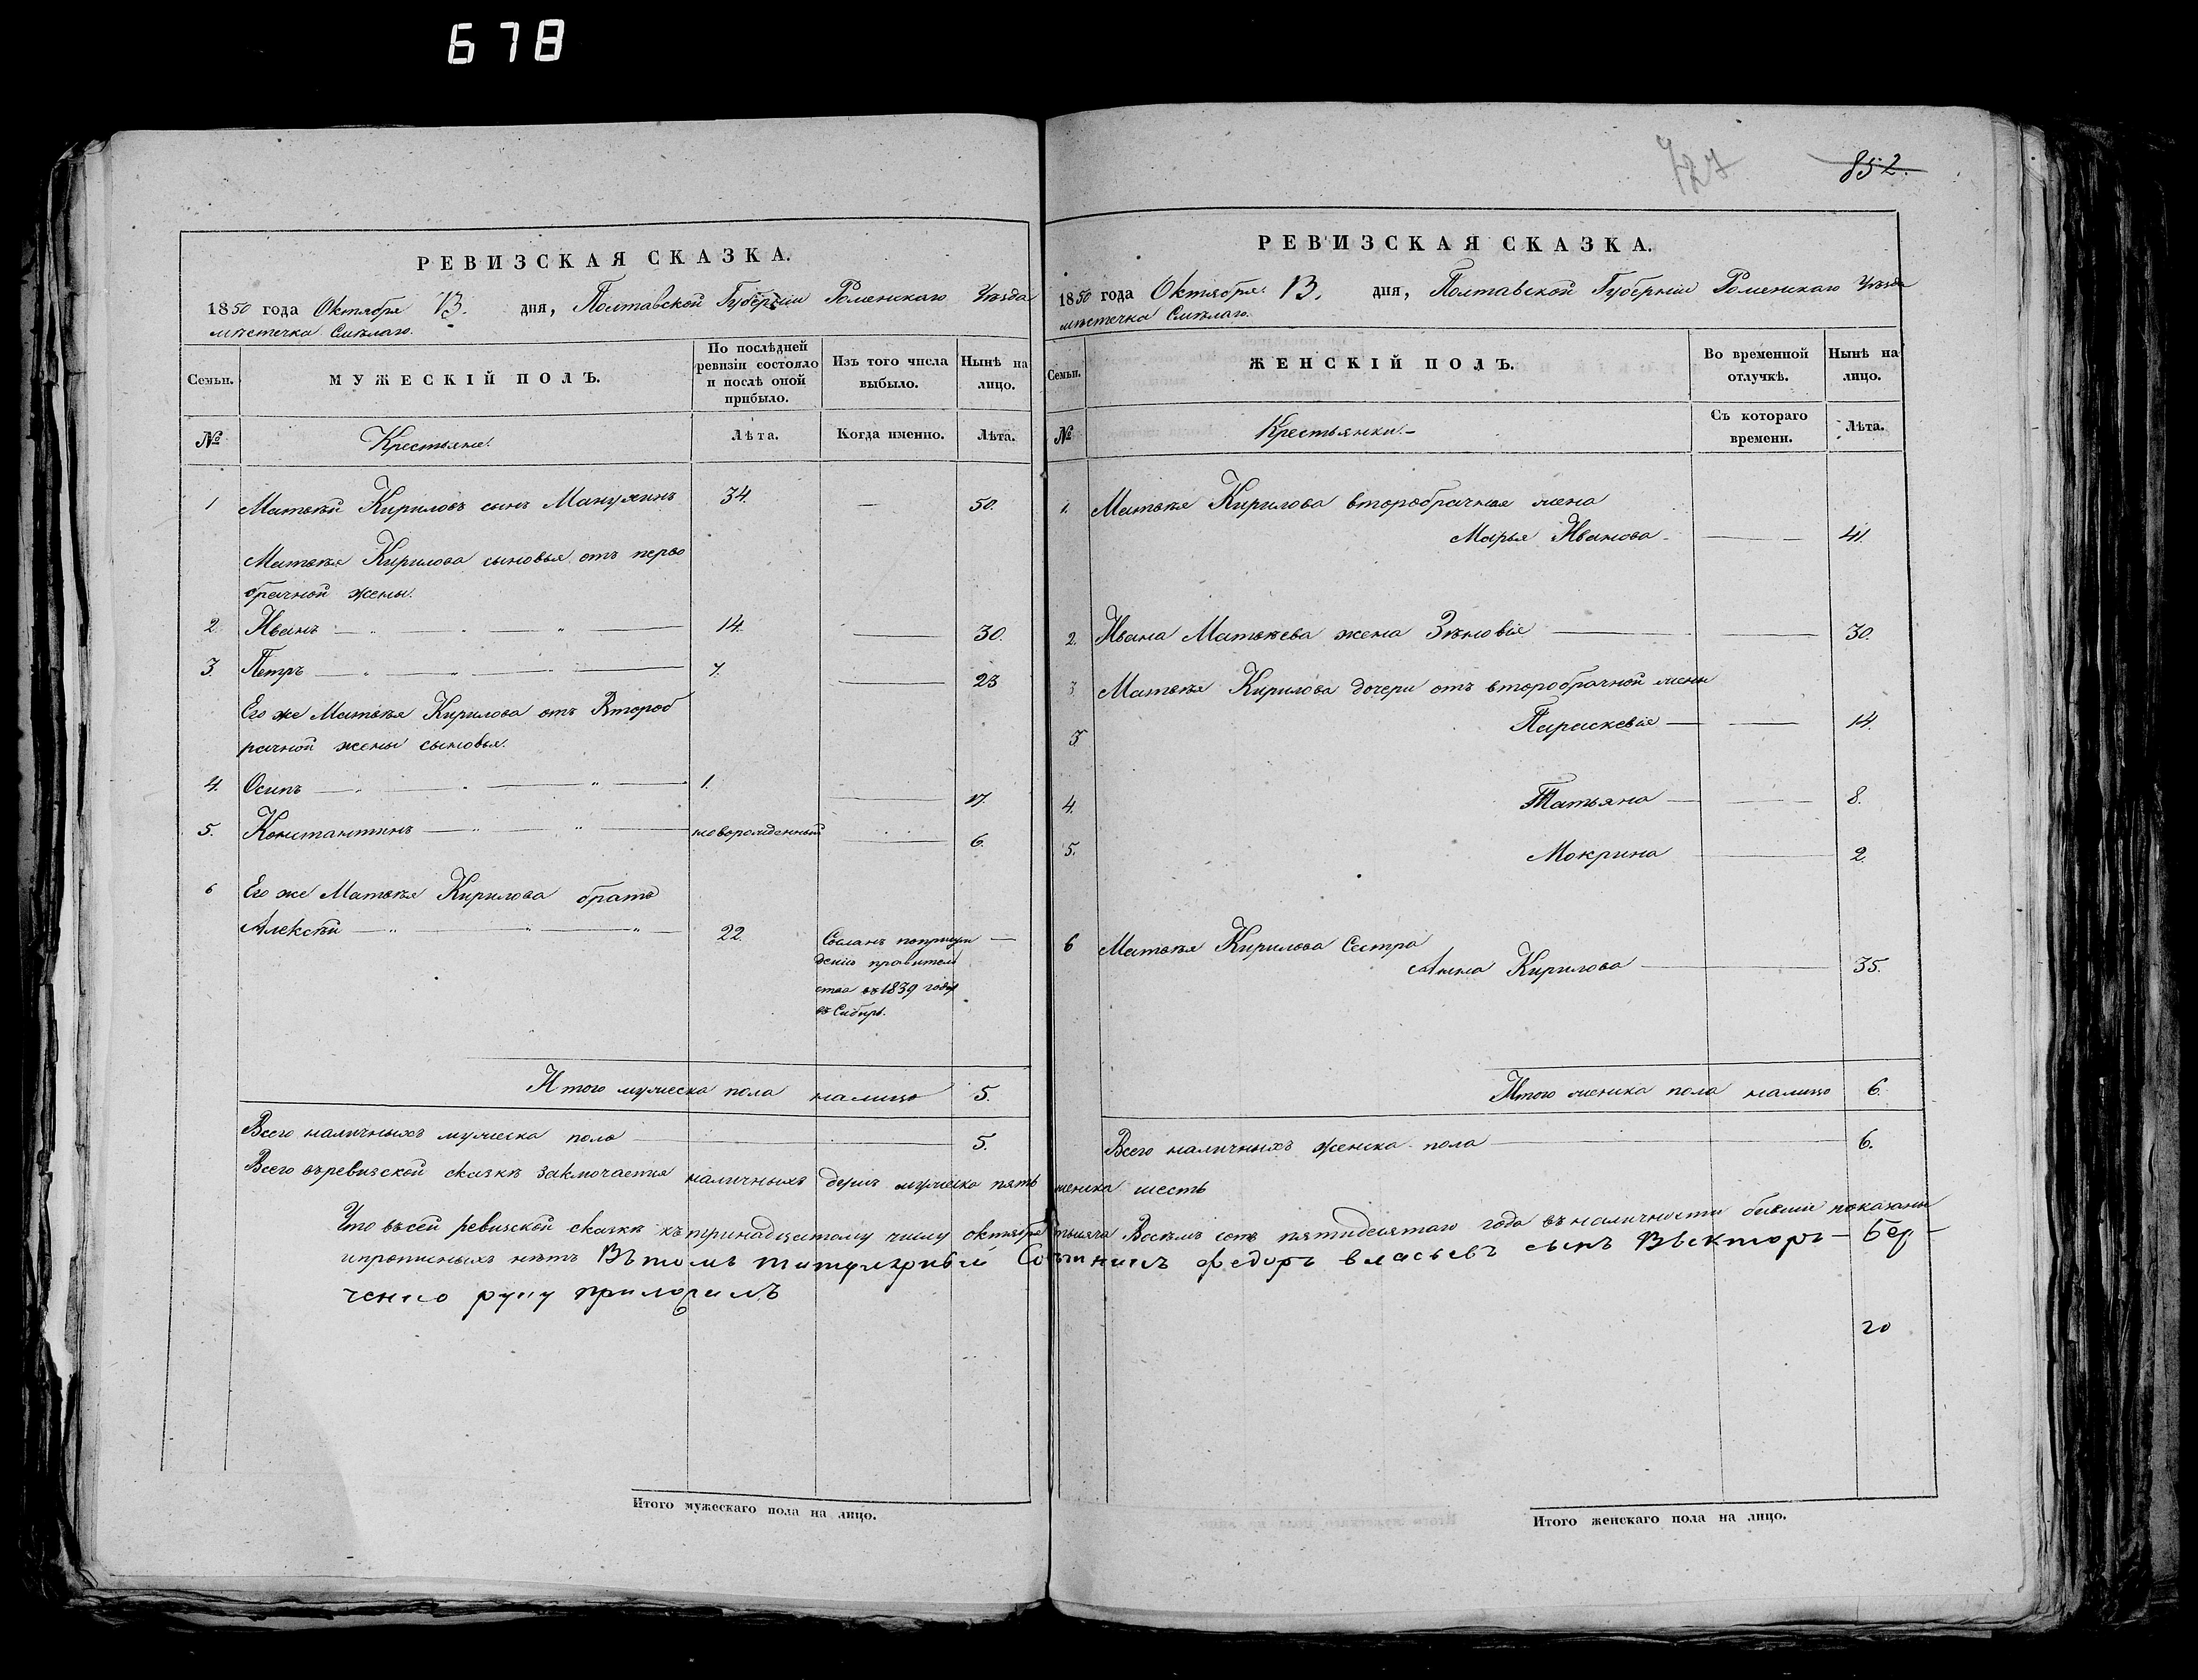 678
РЕВИЗСКАЯ СКАЗКА.
1850 года Октября 13. дня, Полтавской Губерніи Роменскаго Уѣзда
мѣстечка Смѣлаго.
Семьи.
МУЖЕСКІЙ ПОЛЪ.
По послѣдней ревизіи состояло и послѣ оной прибыло.
Изъ того числа выбыло.
Нынѣ на лицо.
№
Крестьяне.
Лѣта.
Когда именно.
Лѣта.
1 Матвѣй Кириловъ сынъ 34. — 50.
Матвѣя Кирилова сыновья отъ перво
брачной жены.
2. Иванъ — 14. — 30.
3. Петръ — 7. — 23
Его же Матвѣя Кирилова отъ Второб
рачной жены сыновья.
4. Осипъ — 1. — 17.
5. Константинъ — новорожденный — 6.
6 Его же Матвѣя Кирилова братъ
Алексѣй — 22. Сосланъ —
правитель
ства въ 1839 году
въ Сибирь.
Итого мужеска пола налицо 5.
Всего наличныхъ мужеска пола — 5.
Всего въ ревизской сказкѣ заключается наличныхъ душъ мужеска пять женска шесть
Что въ сей ревизской сказкѣ къ тринадцатому числу октября тысяча Восемь сотъ пятидесятаго года въ наличности бывши показаны
и прописныхъ нѣтъ Въ томъ федоръ власьевъ сынъ
руку приложилъ
20
Итого мужескаго пола на лицо.
727
852.
РЕВИЗСКАЯ СКАЗКА.
1850 года Октября 13. дня, Полтавской Губерніи Роменскаго Уѣзда
мѣстечка Смѣлаго.
Семьи.
ЖЕНСКІЙ ПОЛЪ.
Во временной отлучкѣ.
Нынѣ на лицо.
№
Крестьянки.
Съ котораго времени.
Лѣта.
1. Матвѣя Кирилова второбрачная жена
Марья Иванова — 41.
2. Ивана Матвѣева жена Зѣновія — 30.
3. Матвѣя Кирилова дочери отъ второбрачной жены
3 Параскевія — 14.
4. Татьяна — 8.
5. Мокрина — 2.
6 Матвѣя Кирилова Сестра
Анна Кирилова — 35.
Итого женска пола налицо 6.
Всего наличныхъ женска пола — 6.
Итого женскаго пола на лицо.